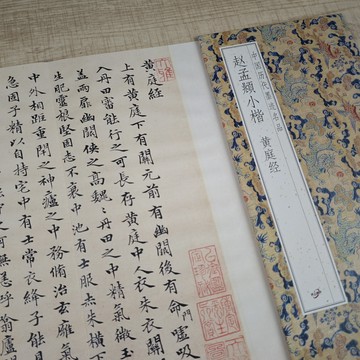 黄庭經
上有黄庭下有關元前有幽闕後有命門嘘吸
入丹田審能行之可長存黄庭中人衣朱衣關
盖兩扉幽闕俠之高巍〻丹田之中精氣微玉
生肥靈根堅固志不衰中池有士服赤朱横下
中外相距重閉之神廬之中務脩治玄雍氣
急固子精以自持宅中有士常衣絳子能
何無恙呼翕廬
中国历代墨迹名品
赵孟頫小楷
黄庭经